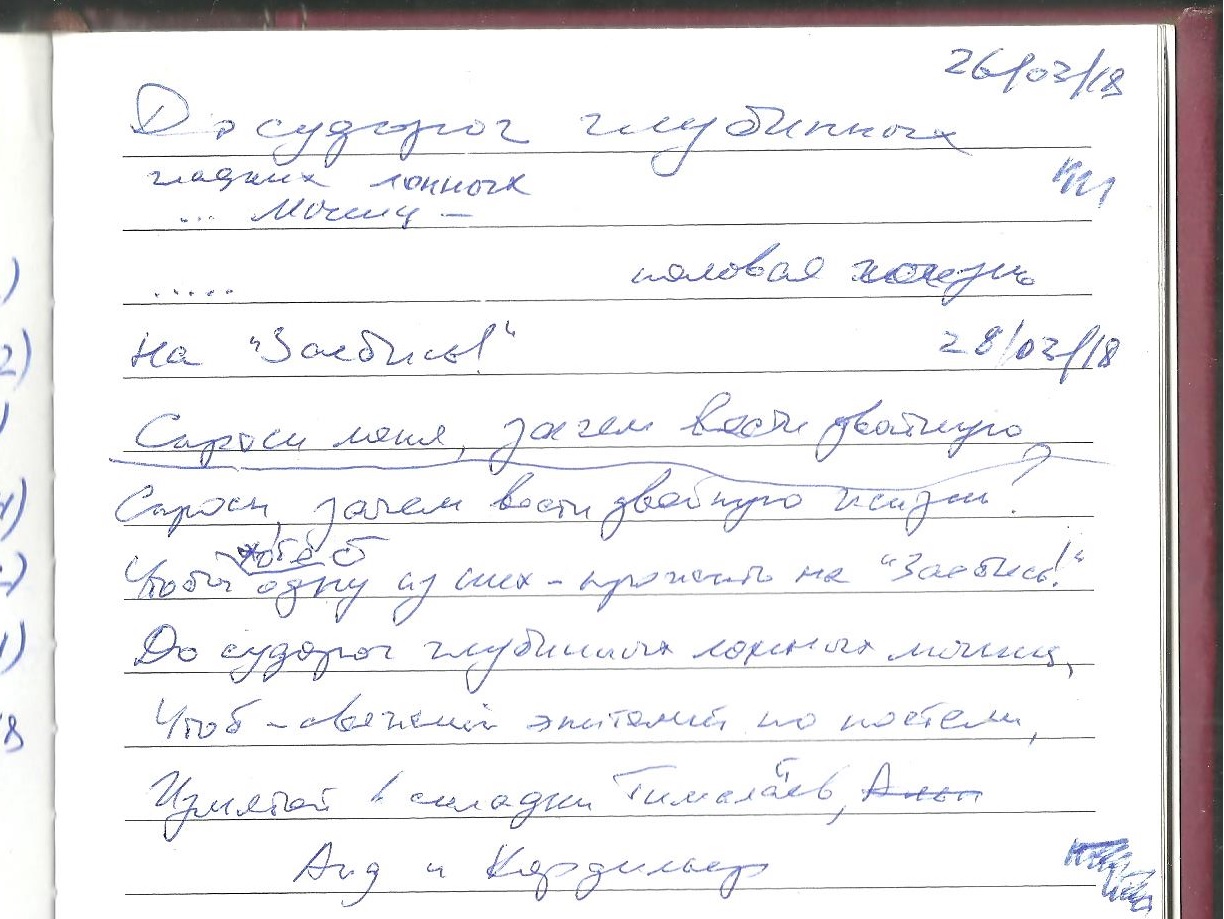 26/03/18
До судорог глубинных
гладких лонных
... мышц –
..... половая жизнь
на "Заебись!"
28/03/18
Спроси меня, зачем вести двойную
Спроси, зачем вести двойную жизнь?
Чтобы одну из них – прожить на "Заебись!"
До судорог глубинных лонных мышц,
Чтоб – свежий эпителий по постели,
Измятой в складки Гималаев, Альп
Анд и Кордильер